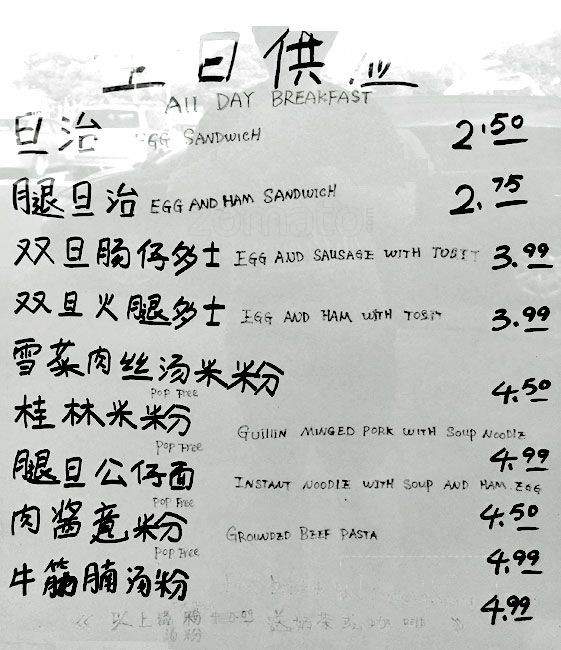 全日供应
All DAY BREAKFAST
旦治 EGG SANDWICH 2.50
腿旦治 EGG AND HAM SANDWICH 2.75
双旦肠仔多士 EGG AND SAUSAGE WITH TOST 3.99
双旦火腿多士 EGG AND HAM WITH TOST 3.99
雪菜肉丝汤米粉 4.50
POP Free
桂林米粉 GUILIN MINGED PORK WITH SOUP NOODLE 4.99
POP Free
腿旦公仔面 INSTANT NOODLE WITH SOUP AND HAM.EGG 4.50
POP Free
肉酱意粉 GROUNDED BEEF PASTA 4.99
POP Free
牛筋腩汤粉 4.99
以上